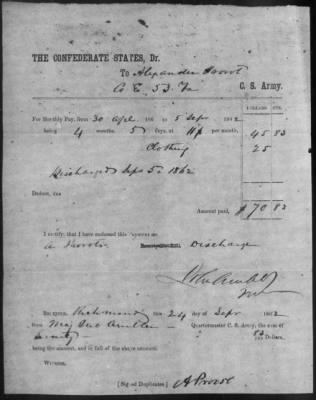 THE CONFEDERATE STATES, Dr.
To Alexander
Co E 53 Va C. S. Army.
DOLLARS CTS.
For Monthly Pay, from 30 April 186 to 5 Sep 1862
being 4 months, 5 days, at 11$ per month, 45 83
Clothing 25
Discharged Sept 5. 1862
Deduct, due
Amount paid, $ 70 83
I certify, that I have endorsed this payment on
Discharge
RECEIVED, Richmond this 24 day of Sepr 1862
from Maj Quartermaster C. S. Army, the sum of
Seventy 83/100 Dollars,
being the amount, and in full of the above account.
WITNESS,
[Signed Duplicates]